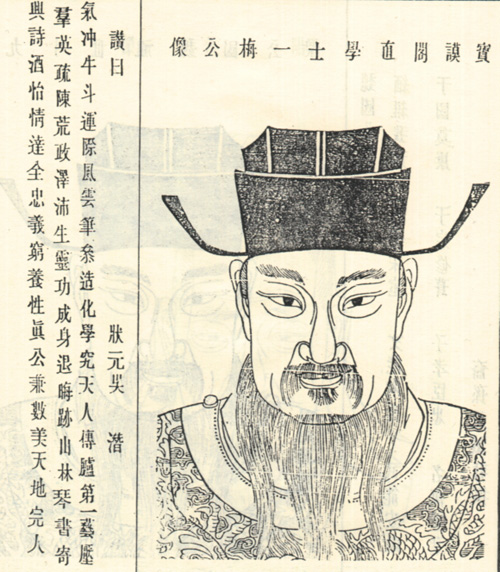 寳謨閣直學士一梅公像
讚曰 狀元吳潛
氣冲牛斗運際風雲筆叅造化學究天人傳臚第一藝壓
羣英疏陳荒政澤沛生靈功成身退晦跡山林琴書寄
興詩酒怡情達全忠義窮養性眞公兼數美天地完人